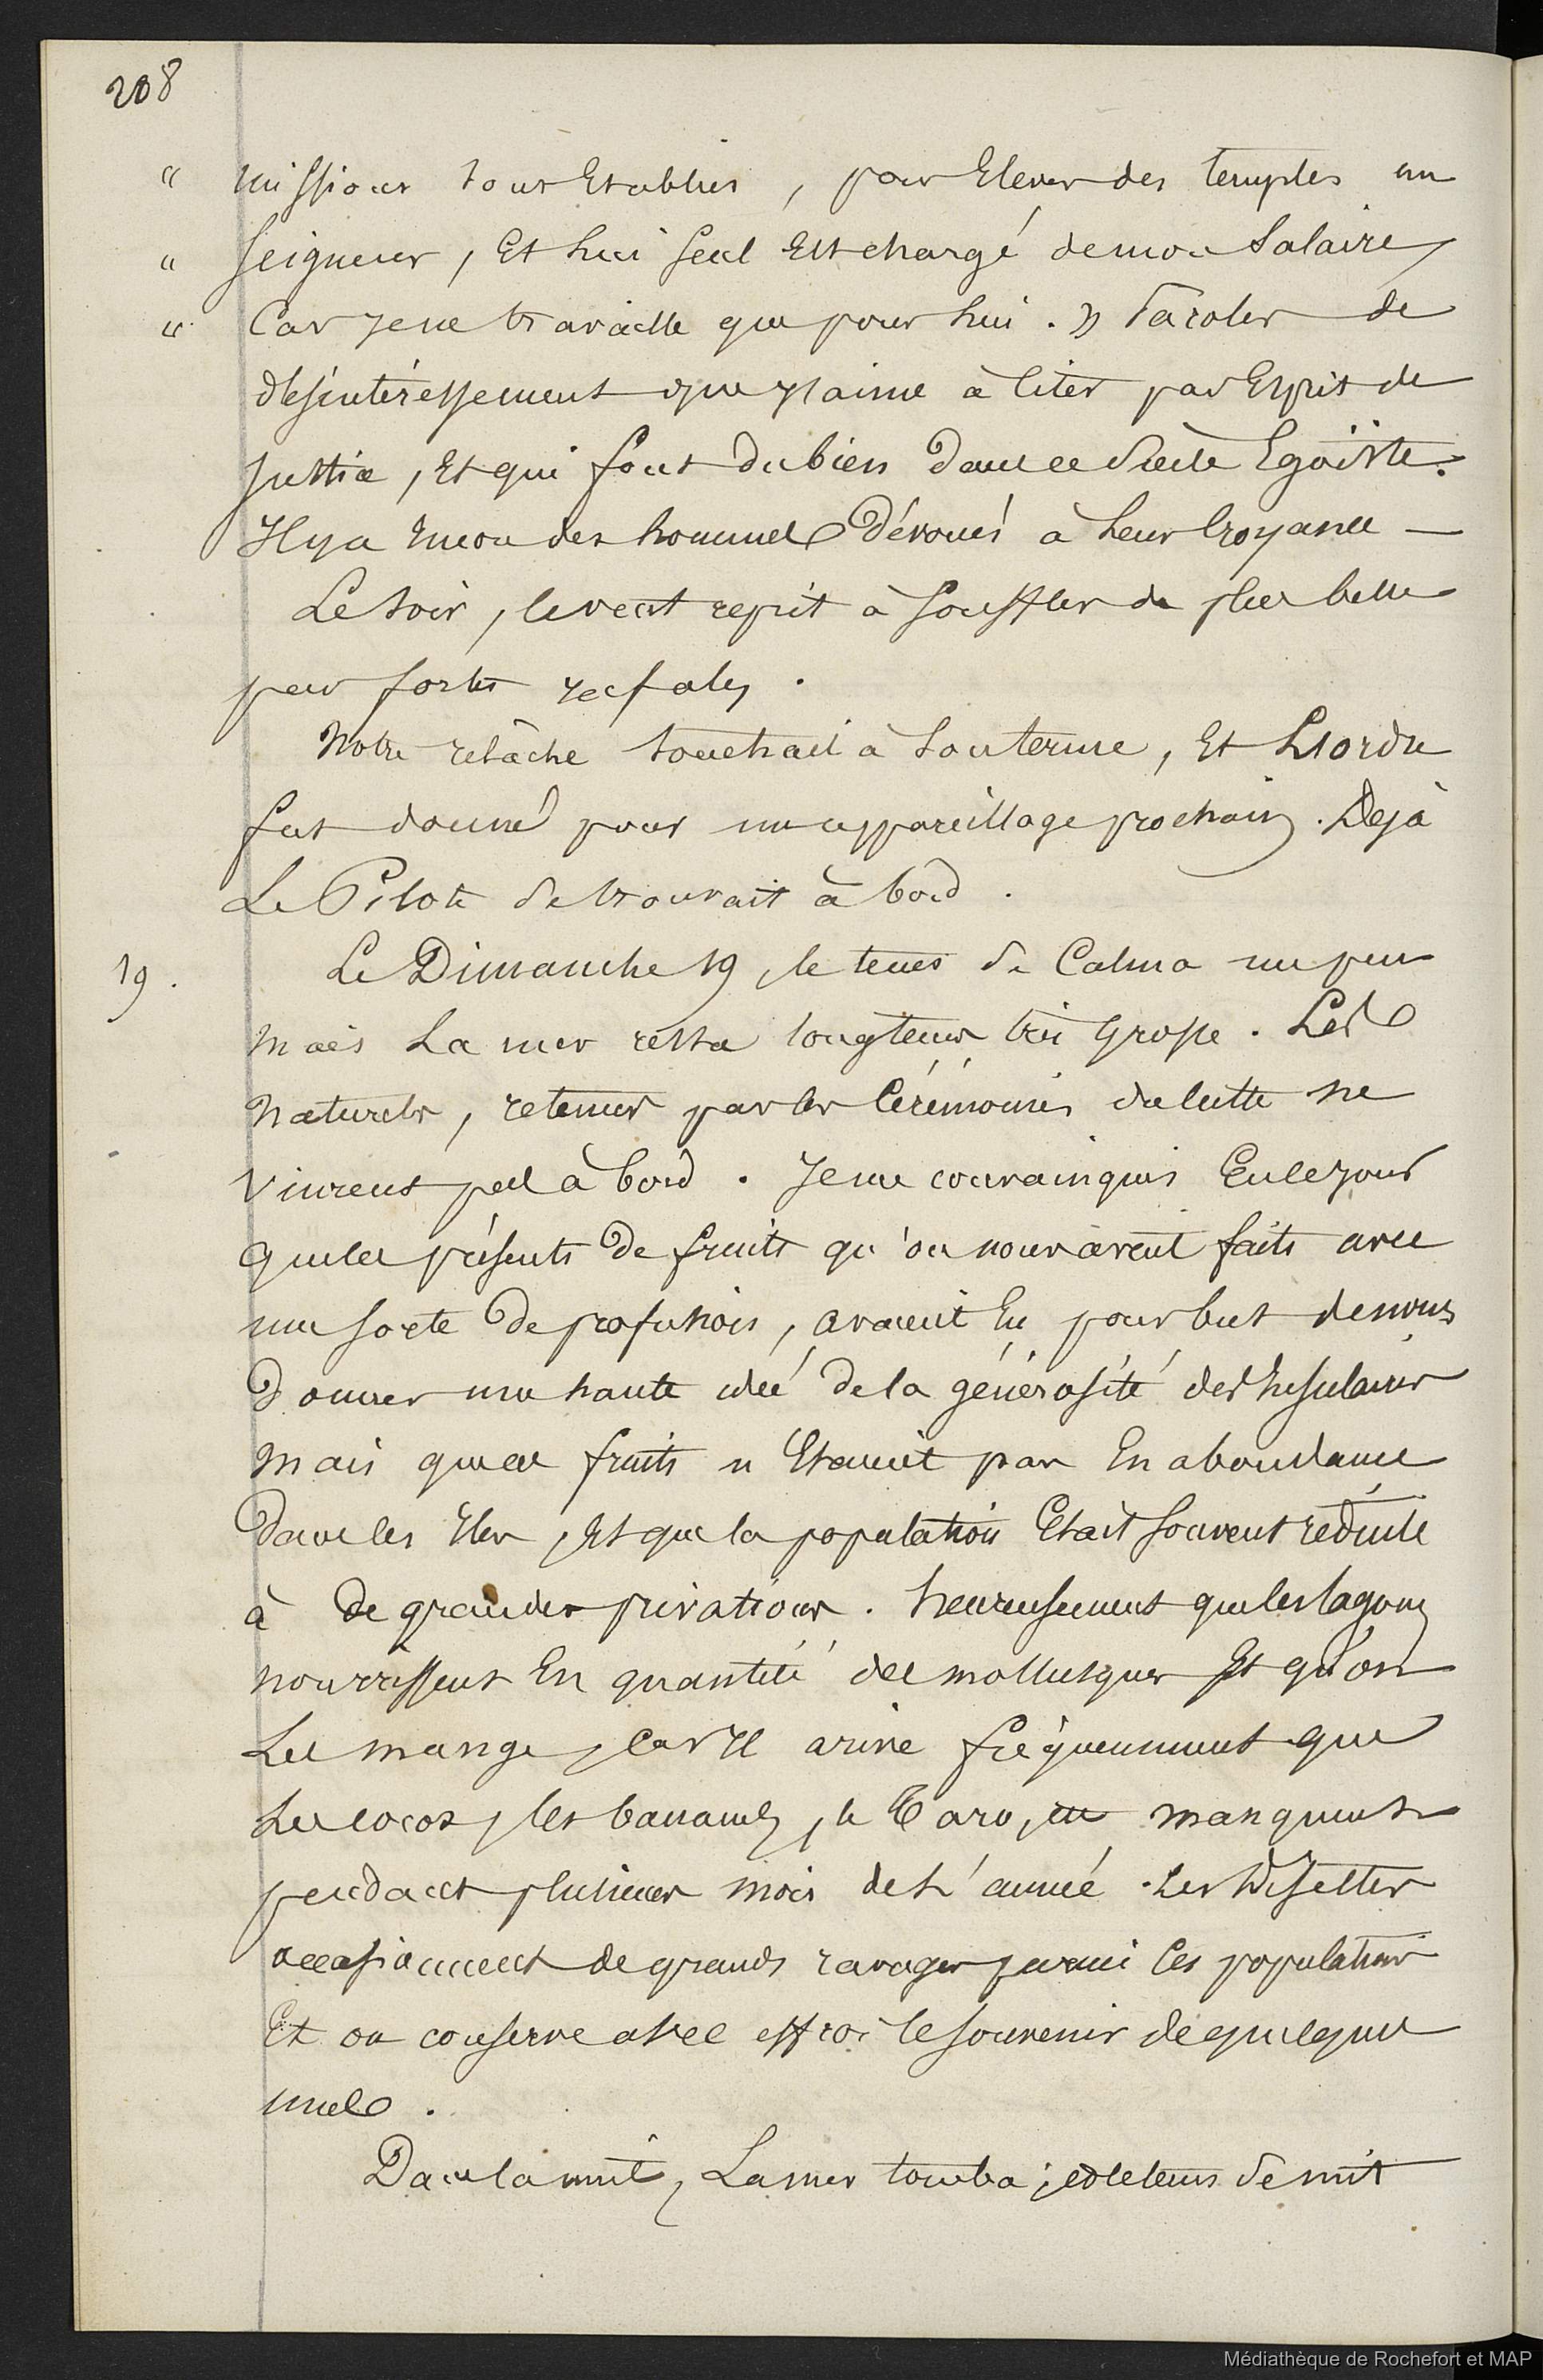 208
" missions sont Etablies, pour Elever des temples au
" Seigneur, Et Lui Seul Est chargé de mon Salaire,
" Car je ne travaille que pour Lui. » Paroles de
désintéressement que j'aime à Citer par Esprit de
justice, Et qui font du bien dans ce Siècle Egoïste.
Il y a Encore des hommes Dévoués à Leur Croyance —
Le soir, le vent reprit à souffler de plus belle
par fortes rafales.
Notre relâche touchait à Son terme, Et L'ordre
fut donné pour un appareillage prochain. Déjà
Le Pilote Se trouvait à bord.
19. Le Dimanche 19, le tems Se Calma un peu
Mais La mer resta longtems très Grosse. Les
Naturels, retenus par les Cérémonies du culte ne
Vinrent pas à bord. Je me convainquis En ce jour
que les présents De fruits qu'on nous avait faits avec
une sorte De profusion, avaient Eu pour but de nous
Donner une haute idée De la générosité des Insulaires
Mais que ces fruits n'Etaient pas En abondance
Dans les Iles, Et que la population Etait souvent réduite
à De grandes privations. Heureusement que les lagons
nourrissent En quantité des mollusques Et qu'on
Les mange, Car Il arrive fréquemment que
Les cocos, les bananes, le Taro, manquent
pendant plusieurs mois de L'année. Les Disettes
occasionnent de grands ravages parmi Ces populations
Et on conserve avec effroi le souvenir de quelques
unes.
Dans la nuit, La mer tomba ; et le tems Se mit
Médiathèque de Rochefort et MAP